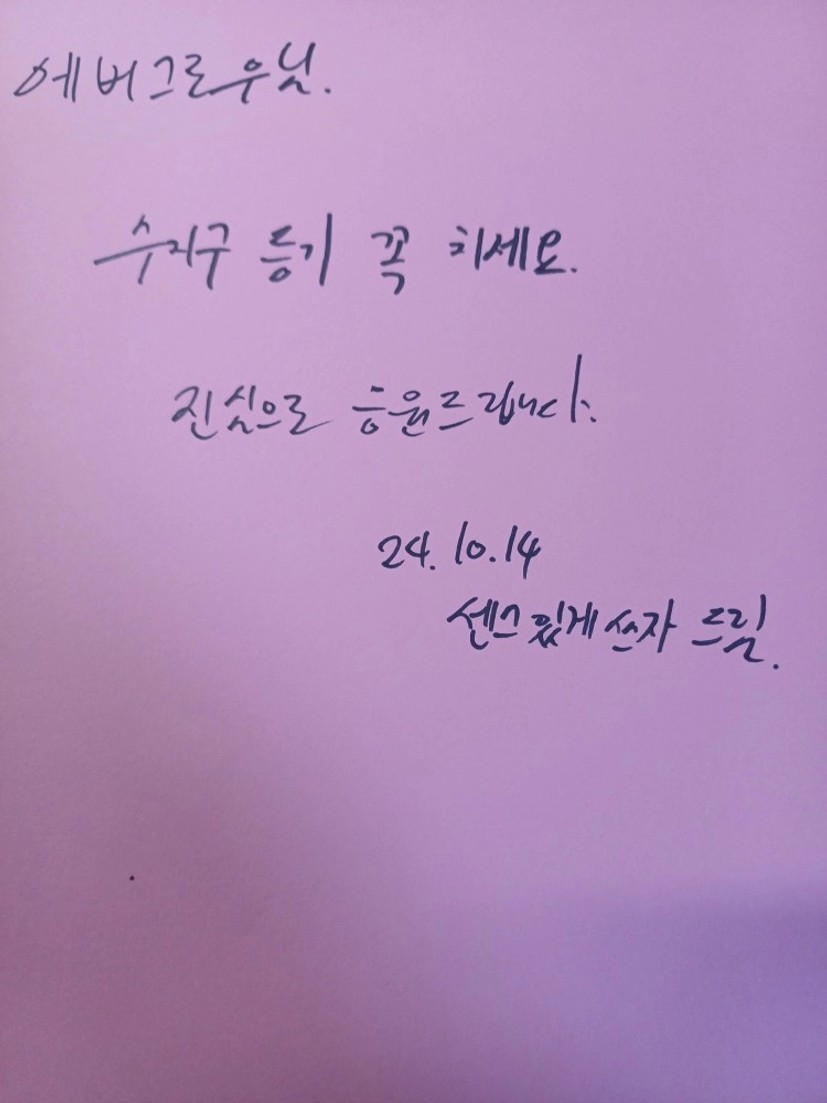 에버그로우님.
수지구 등기 꼭 치세요.
진심으로 응원드립니다.
24.10.14
센스있게쓰자 드림.